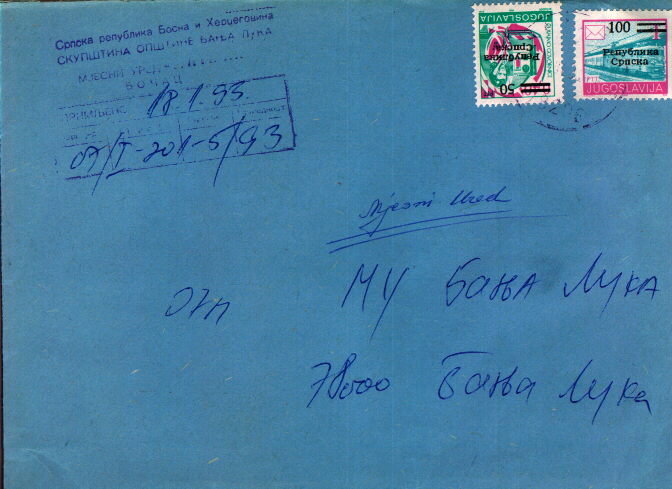 Српска република Босна и Херцеговина
СКУПШТИНА ОПШТИНЕ БАЊА ЛУКА
МЈЕСНИ УРЕД
БОЧАЦ
ПРИМЉЕНО: 18.1.93.
07/I-201-5/93
JUGOSLAVIJA
Република
Српска
50
100
Република
Српска
JUGOSLAVIJA
Mjesni Ured
МУ БАЊА ЛУКА
78000 Бања Лука